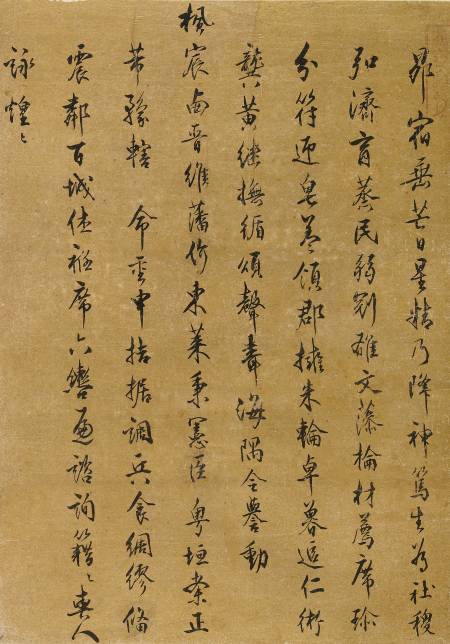 昴宿垂芒日星精乃降神篤生為社稷
弘濟育蒸民弱冠雄文藻掄材薦席珍
分符迎皂蓋領郡擁朱輪卓暮追仁術
龔黃繼撫循頌聲喜海隅令譽動
楓宸鹵晉維藩价東萊秉憲臣粵垣崇正
節豫轄命重申拮据調兵食綢繆脩
震鄰百城佳衽席六轡遍諮詢籍籍輿人
詠煌煌